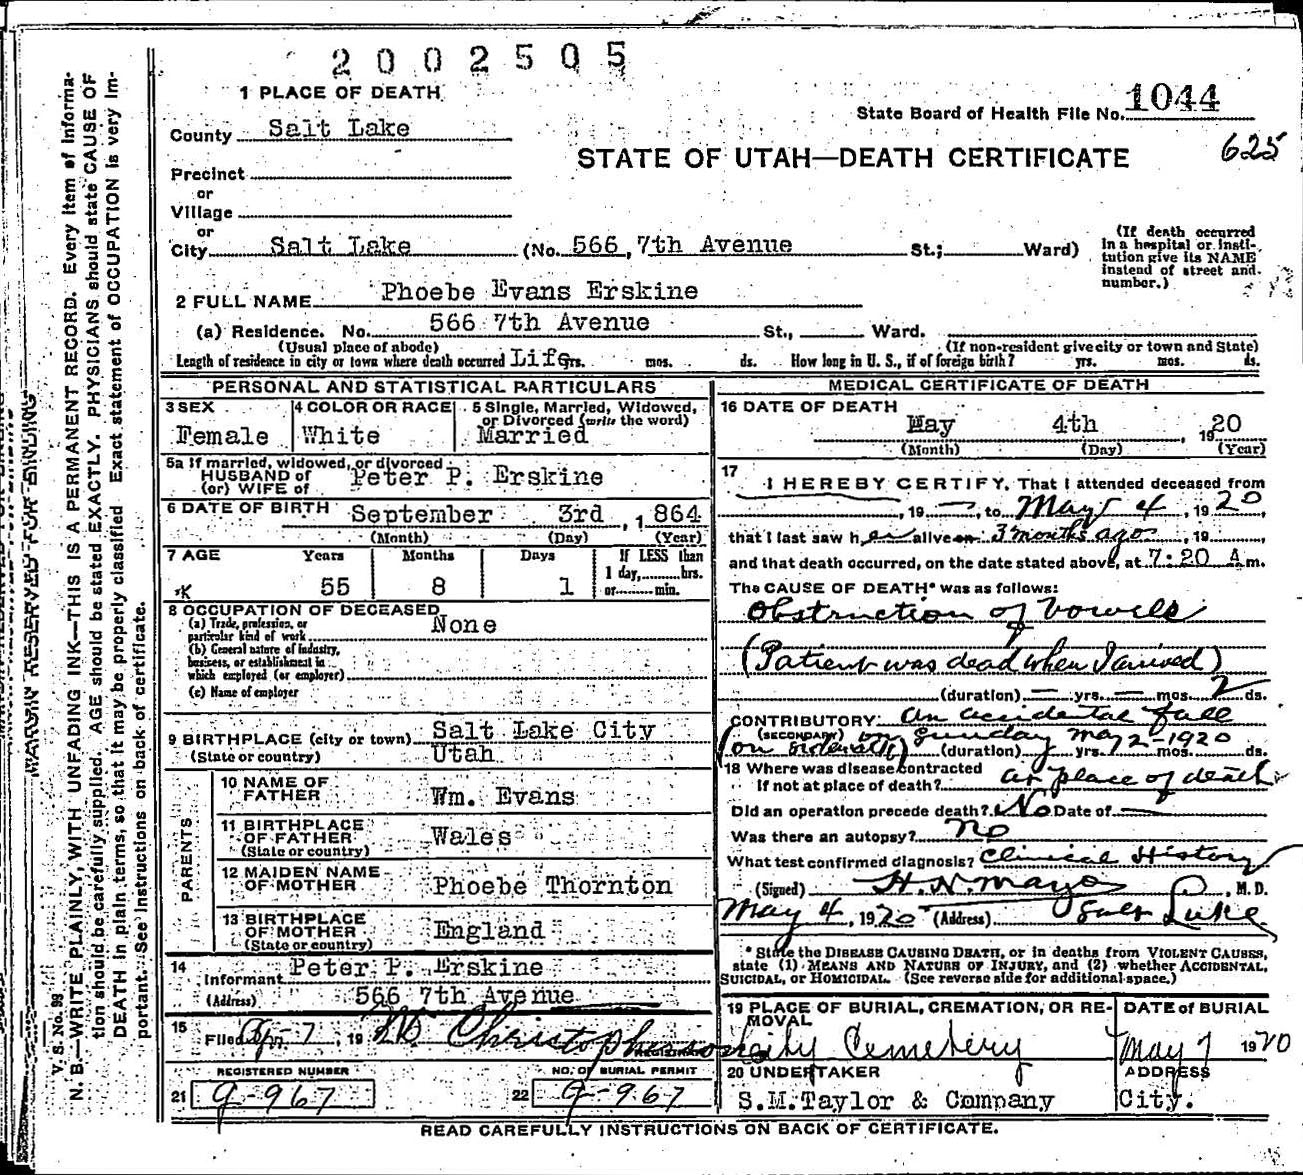 2002505
1 PLACE OF DEATH
State Board of Health File No. 1044
County Salt Lake
625
STATE OF UTAH—DEATH CERTIFICATE
Precinct
or
Village
or
City Salt Lake (No. 566, 7th Avenue St.; Ward)
(If death occurred in a hospital or institution give its NAME instead of street and number.)
2 FULL NAME Phoebe Evans Erskine
(a) Residence. No. 566 7th Avenue St., Ward.
(Usual place of abode) (If non-resident give city or town and State)
Length of residence in city or town where death occurred Life yrs. mos. ds. How long in U. S., if of foreign birth? yrs. mos. ds.
PERSONAL AND STATISTICAL PARTICULARS
3 SEX
Female
4 COLOR OR RACE
White
5 Single, Married, Widowed, or Divorced (write the word)
Married
5a If married, widowed, or divorced
HUSBAND of
(or) WIFE of
Peter P. Erskine
6 DATE OF BIRTH September 3rd, 1864
(Month) (Day) (Year)
7 AGE Years Months Days If LESS than
1 day,......hrs.
or......min.
K 55 8 1
8 OCCUPATION OF DECEASED
(a) Trade, profession, or
particular kind of work None
(b) General nature of industry,
business, or establishment in
which employed (or employer)
(c) Name of employer
9 BIRTHPLACE (city or town) Salt Lake City
(State or country) Utah
PARENTS
10 NAME OF
FATHER Wm. Evans
11 BIRTHPLACE
OF FATHER Wales
(State or country)
12 MAIDEN NAME
OF MOTHER Phoebe Thornton
13 BIRTHPLACE
OF MOTHER England
(State or country)
14
Informant Peter P. Erskine
(Address) 566 7th Avenue
15
Filed 7, 19 Christopherson
REGISTRAR
REGISTERED NUMBER
21 9-967
NO. OF BURIAL PERMIT
22 9-967
MEDICAL CERTIFICATE OF DEATH
16 DATE OF DEATH
May 4th, 1920
(Month) (Day) (Year)
17
I HEREBY CERTIFY, That I attended deceased from
, 19 —, to May 4, 1920,
that I last saw her alive on 3 months ago, 19
and that death occurred, on the date stated above, at 7:20 A m.
The CAUSE OF DEATH* was as follows:
Obstruction of bowels
(Patient was dead when I arrived)
(duration) — yrs. — mos. 2 ds.
CONTRIBUTORY: An accidental fall
(SECONDARY) on Sunday May 2-1920
(on sidewalk) (duration) yrs. mos. ds.
18 Where was disease contracted
If not at place of death? at place of death
Did an operation precede death? No Date of —
Was there an autopsy? no
What test confirmed diagnosis? Clinical History
(Signed) H. N. Mayo, M. D.
May 4, 1920 (Address) Salt Lake
* State the DISEASE CAUSING DEATH, or in deaths from VIOLENT CAUSES,
state (1) MEANS AND NATURE OF INJURY, and (2) whether ACCIDENTAL,
SUICIDAL, or HOMICIDAL. (See reverse side for additional space.)
19 PLACE OF BURIAL, CREMATION, OR REMOVAL
City Cemetery
DATE OF BURIAL
May 7 1920
20 UNDERTAKER
S.M. Taylor & Company
ADDRESS
City.
READ CAREFULLY INSTRUCTIONS ON BACK OF CERTIFICATE.
MARGIN RESERVED FOR BINDING
V. S. No. 98
N. B.—WRITE PLAINLY, WITH UNFADING INK—THIS IS A PERMANENT RECORD. Every item of information should be carefully supplied. AGE should be stated EXACTLY. PHYSICIANS should state CAUSE OF DEATH in plain terms, so that it may be properly classified. Exact statement of OCCUPATION is very important. See instructions on back of certificate.